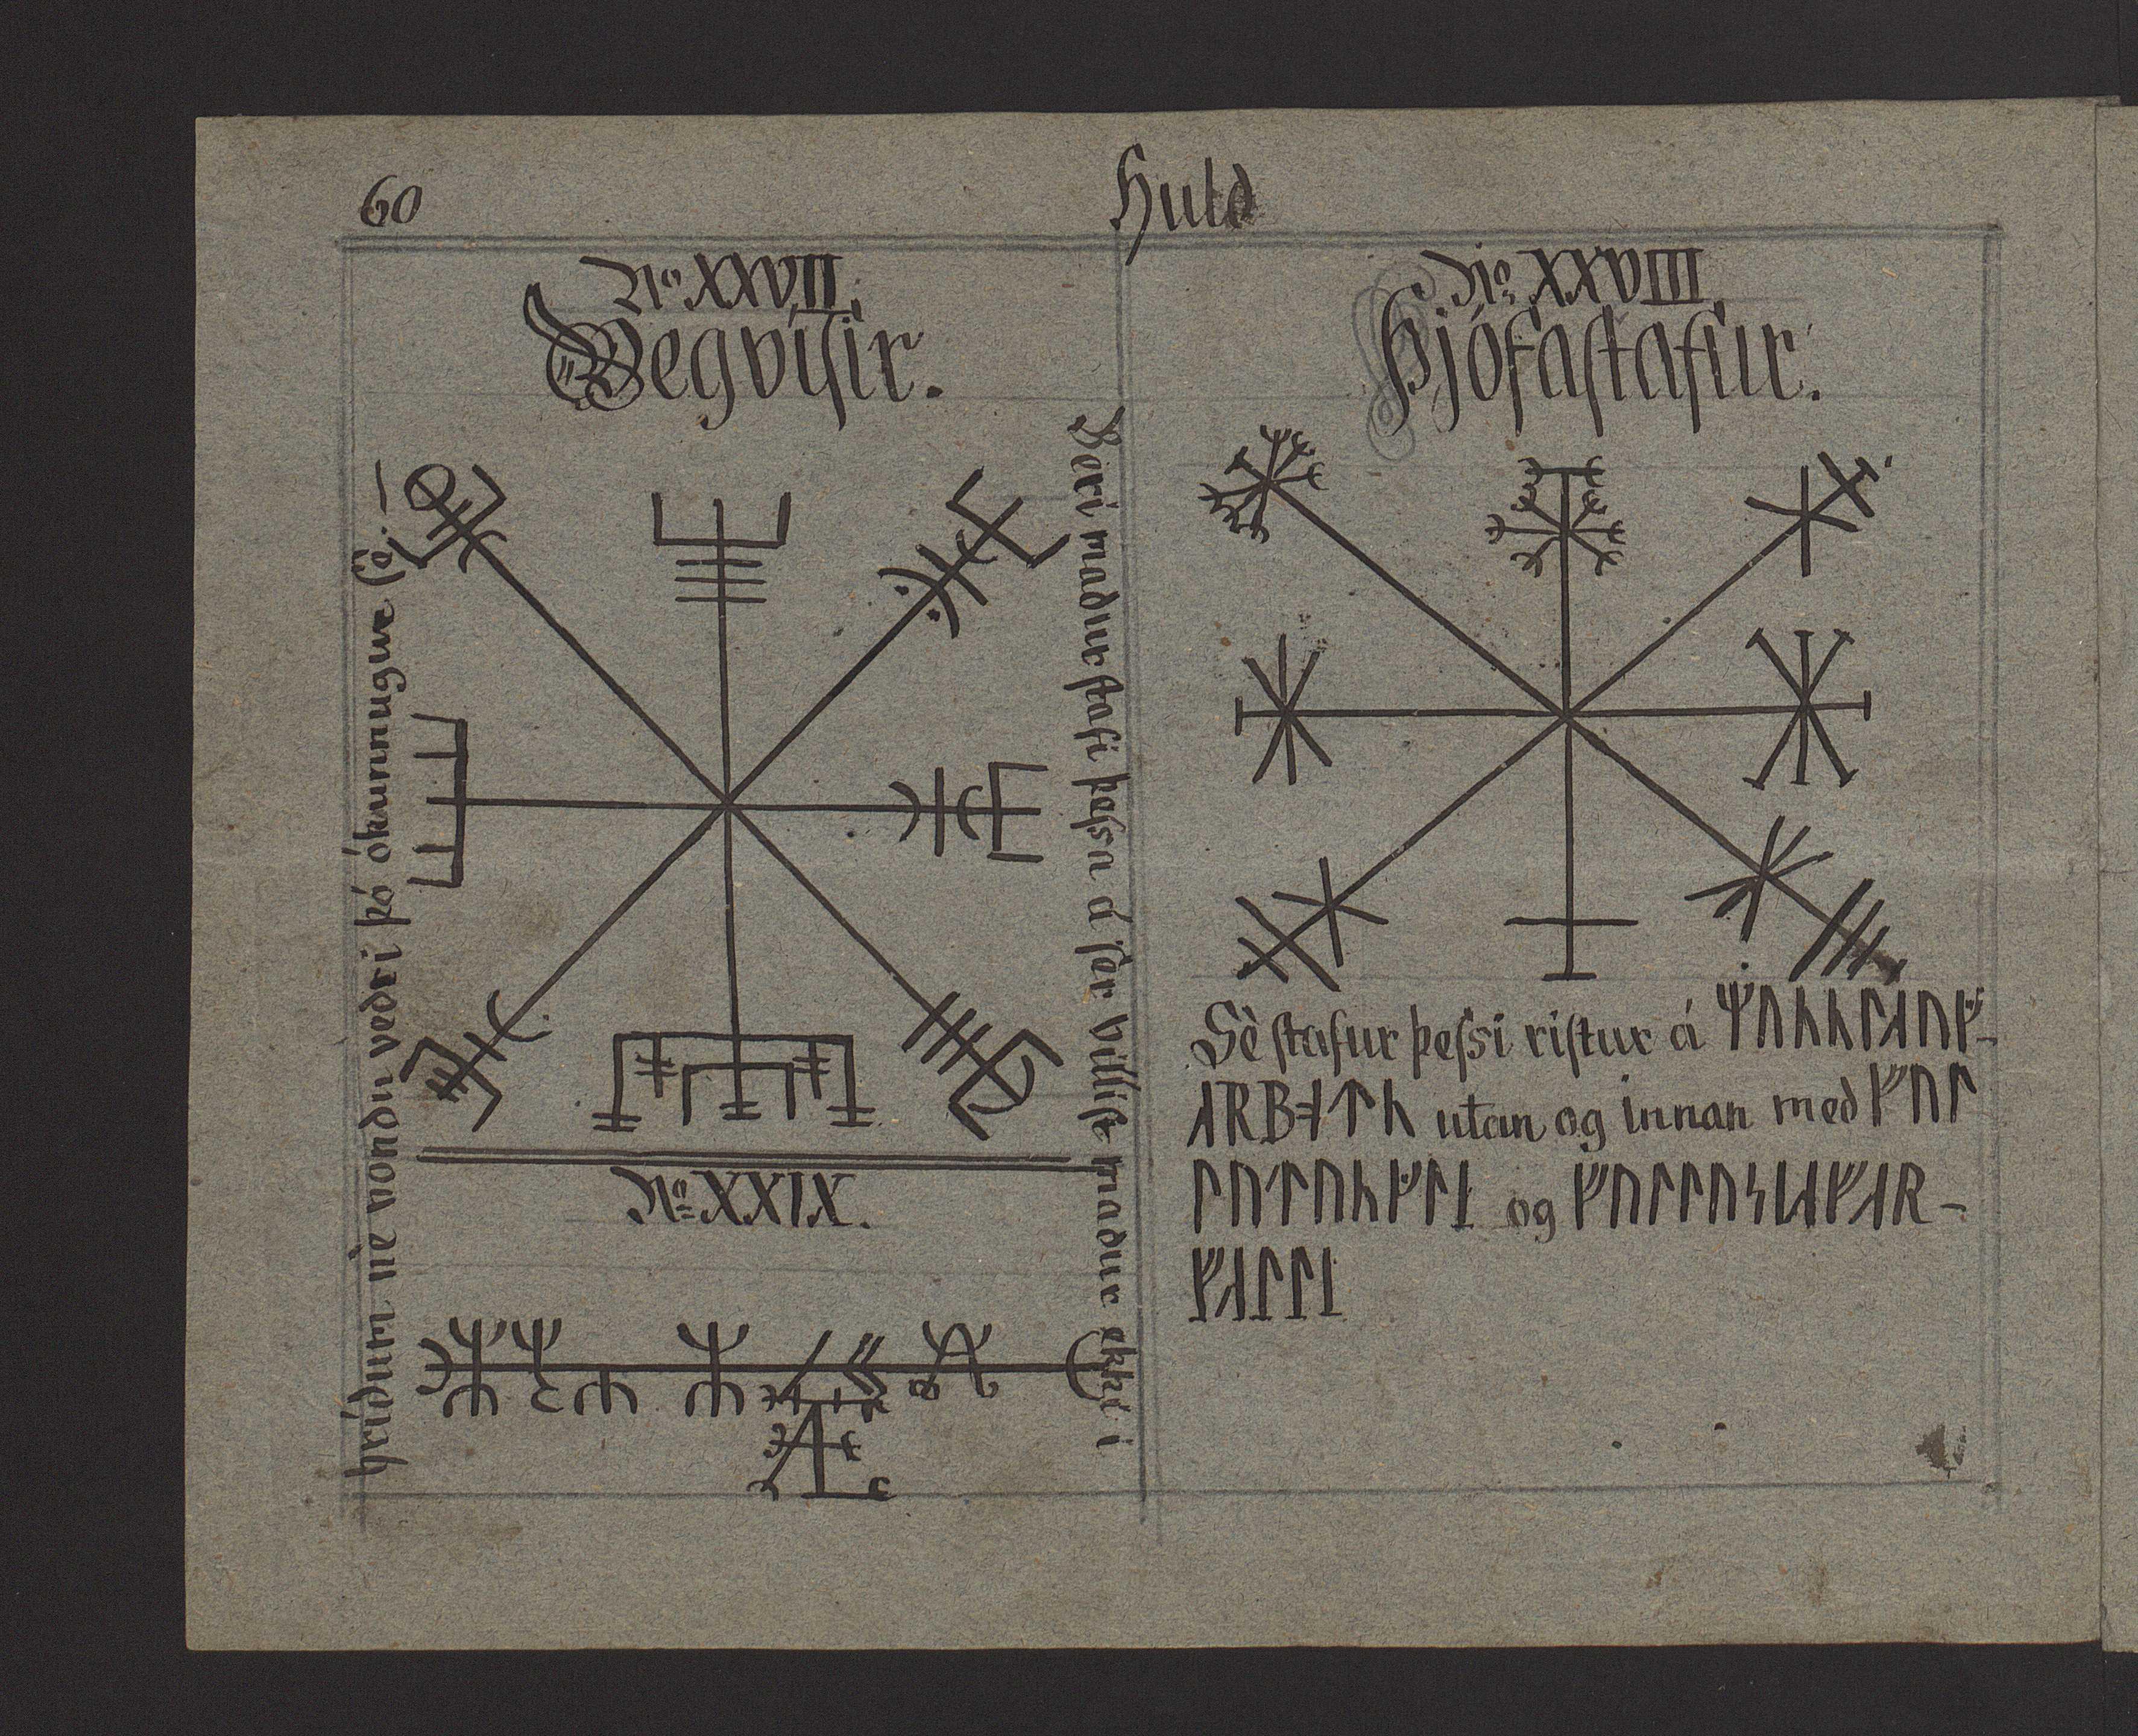 60
Huld
No XXVII.
Vegvísir.
Beri maður stafi þeſsa á ſér villiſt maður ekki í
hríðum né vondu veðri þó ókunnugur ſè. —
No XXIX.
No XXVIII.
Þjófaſtafur.
Sè ſtafur þeſsi riſtur á ᛉᚢᚼᚼᛚᛆᚢᚠ-
ᛆᚱᛒ utan og innan með ᚠᚢᛚ
ᛚᚢᛏᚢᚼ og ᚠᚢᛚᛚᚢ
ᚠᛆᛚᛚ